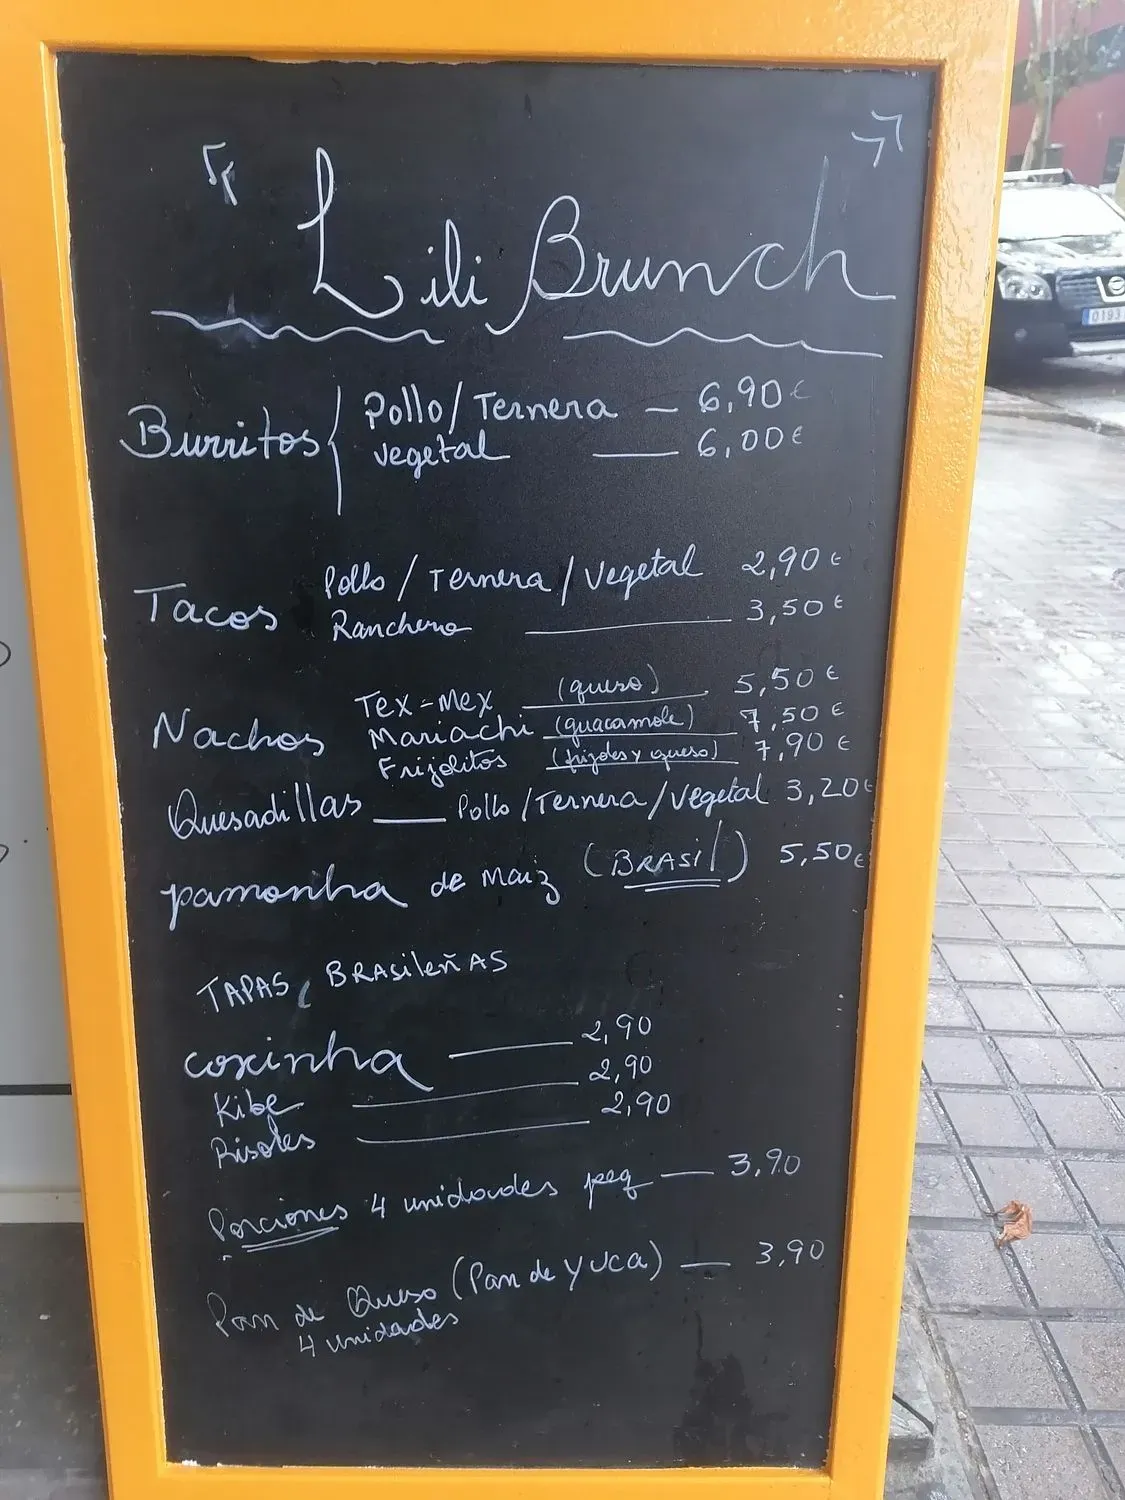 Lili Brunch
Burritos { Pollo/Ternera — 6,90€
vegetal — 6,00€
Tacos Pollo / Ternera / Vegetal 2,90€
Ranchero — 3,50€
Nachos Tex-Mex (queso) 5,50€
Mariachi (guacamole) 7,50€
Frijolitos (frijoles y queso) 7,90€
Quesadillas — Pollo/Ternera/Vegetal 3,20€
pamonha de Maiz (BRASil) 5,50€
TAPAS BRASileñAS
coxinha — 2,90
Kibe — 2,90
Risoles — 2,90
Porciones 4 unidades peq — 3,90
Pan de Queso (Pan de yuca) — 3,90
4 unidades
0193